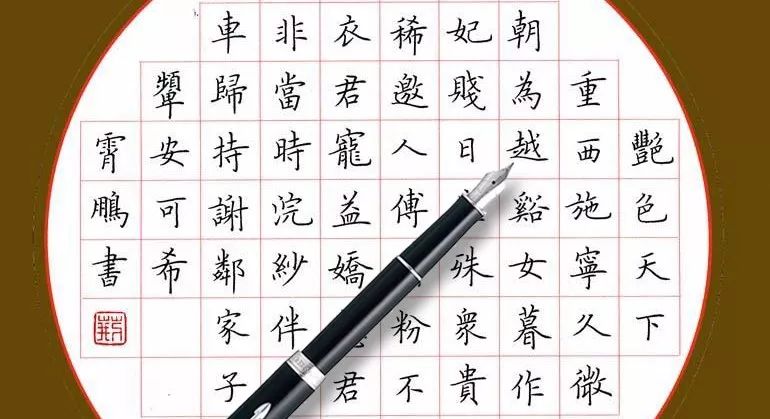 豔色天下
重西施寧久微
朝為越谿女暮作
妃賤日殊眾貴
稀邀人傅粉不
衣君寵益嬌君
非當時浣紗伴
車歸持謝鄰家子
顰安可希
霄鵬書